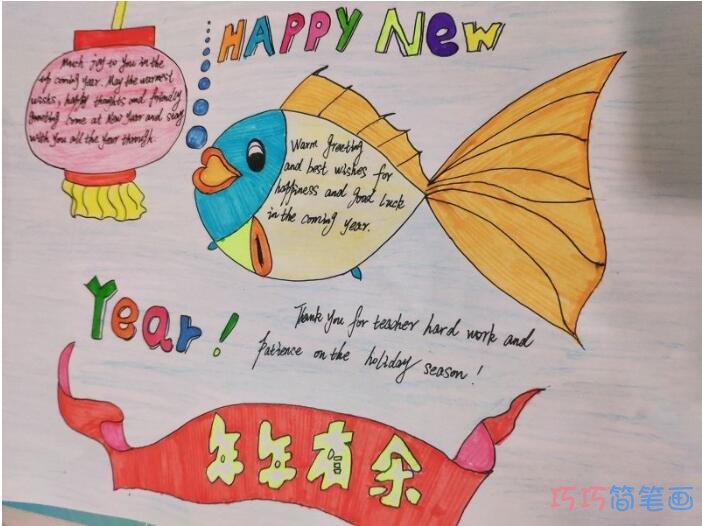 HAPPY New
Much joy to you in the
up coming year. May the warmest
wishs, happy thoughts and friendly
greeting come at New Year and stay
with you all the year through.
Warm greeting
and best wishes for
happiness and good luck
in the coming year.
Year!
Thank you for teacher hard work and
patience on the holiday season!
年年有余
巧巧简笔画